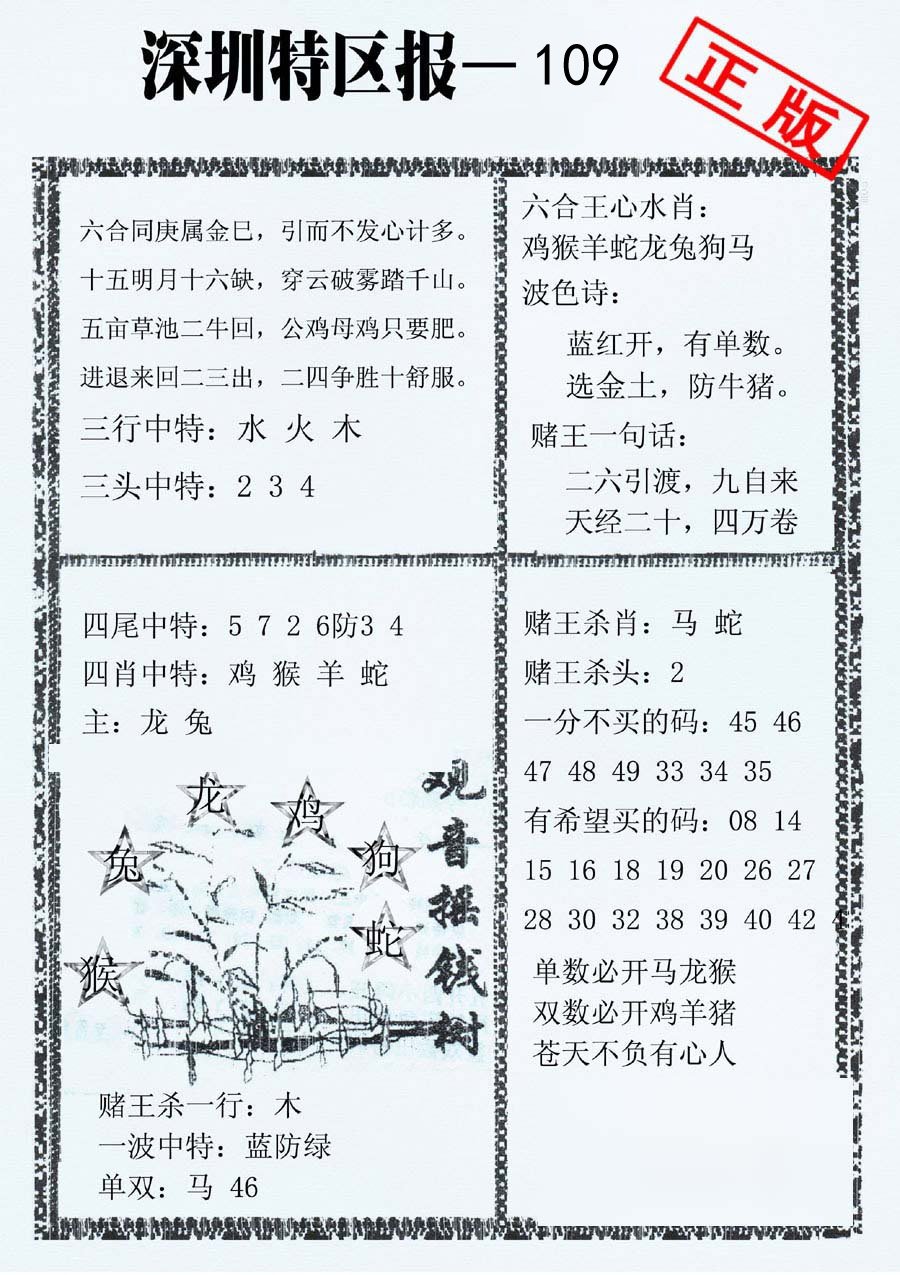 深圳特区报—109
正版
六合同庚属金巳，引而不发心计多。
十五明月十六缺，穿云破雾踏千山。
五亩草池二牛回，公鸡母鸡只要肥。
进退来回二三出，二四争胜十舒服。
三行中特：水 火 木
三头中特：2 3 4
六合王心水肖：
鸡猴羊蛇龙兔狗马
波色诗：
蓝红开，有单数。
选金土，防牛猪。
赌王一句话：
二六引渡，九自来
天经二十，四万卷
四尾中特：5 7 2 6防3 4
四肖中特：鸡 猴 羊 蛇
主：龙 兔
龙
鸡
兔
狗
蛇
猴
观音摇钱树
赌王杀一行：木
一波中特：蓝防绿
单双：马 46
赌王杀肖：马 蛇
赌王杀头：2
一分不买的码：45 46
47 48 49 33 34 35
有希望买的码：08 14
15 16 18 19 20 26 27
28 30 32 38 39 40 42
单数必开马龙猴
双数必开鸡羊猪
苍天不负有心人